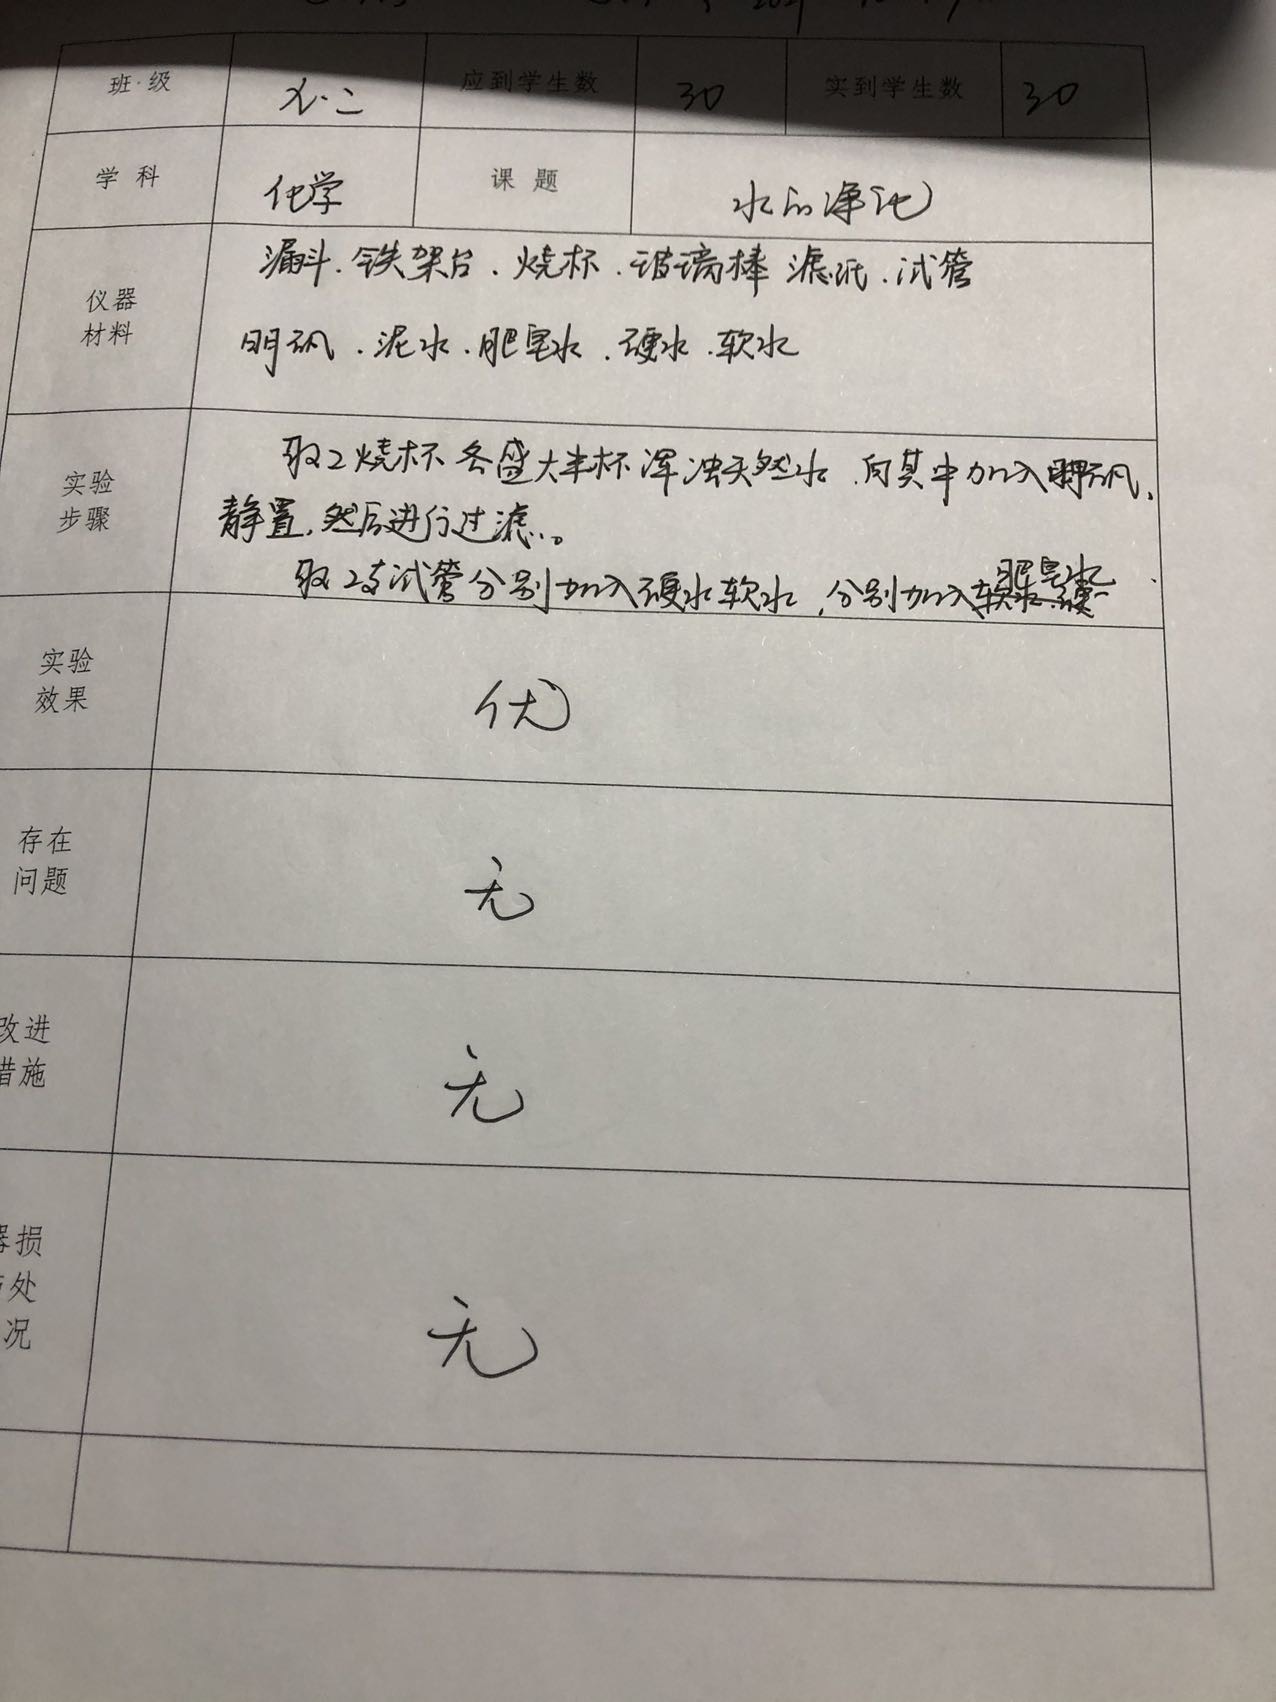 班·级 九.二 应到学生数 30 实到学生数 30
学 科 化学 课 题 水的净化
仪器
材料
漏斗.铁架台.烧杯.玻璃棒 滤纸.试管
明矾.泥水.肥皂水.硬水.软水
实验
步骤
取2烧杯各盛大半杯浑浊天然水.向其中加入明矾,
静置,然后进行过滤。
取2支试管分别加入硬水软水,分别加入肥皂水.
实验
效果
优
存在
问题
无
改进
措施
无
器损
处
况
无